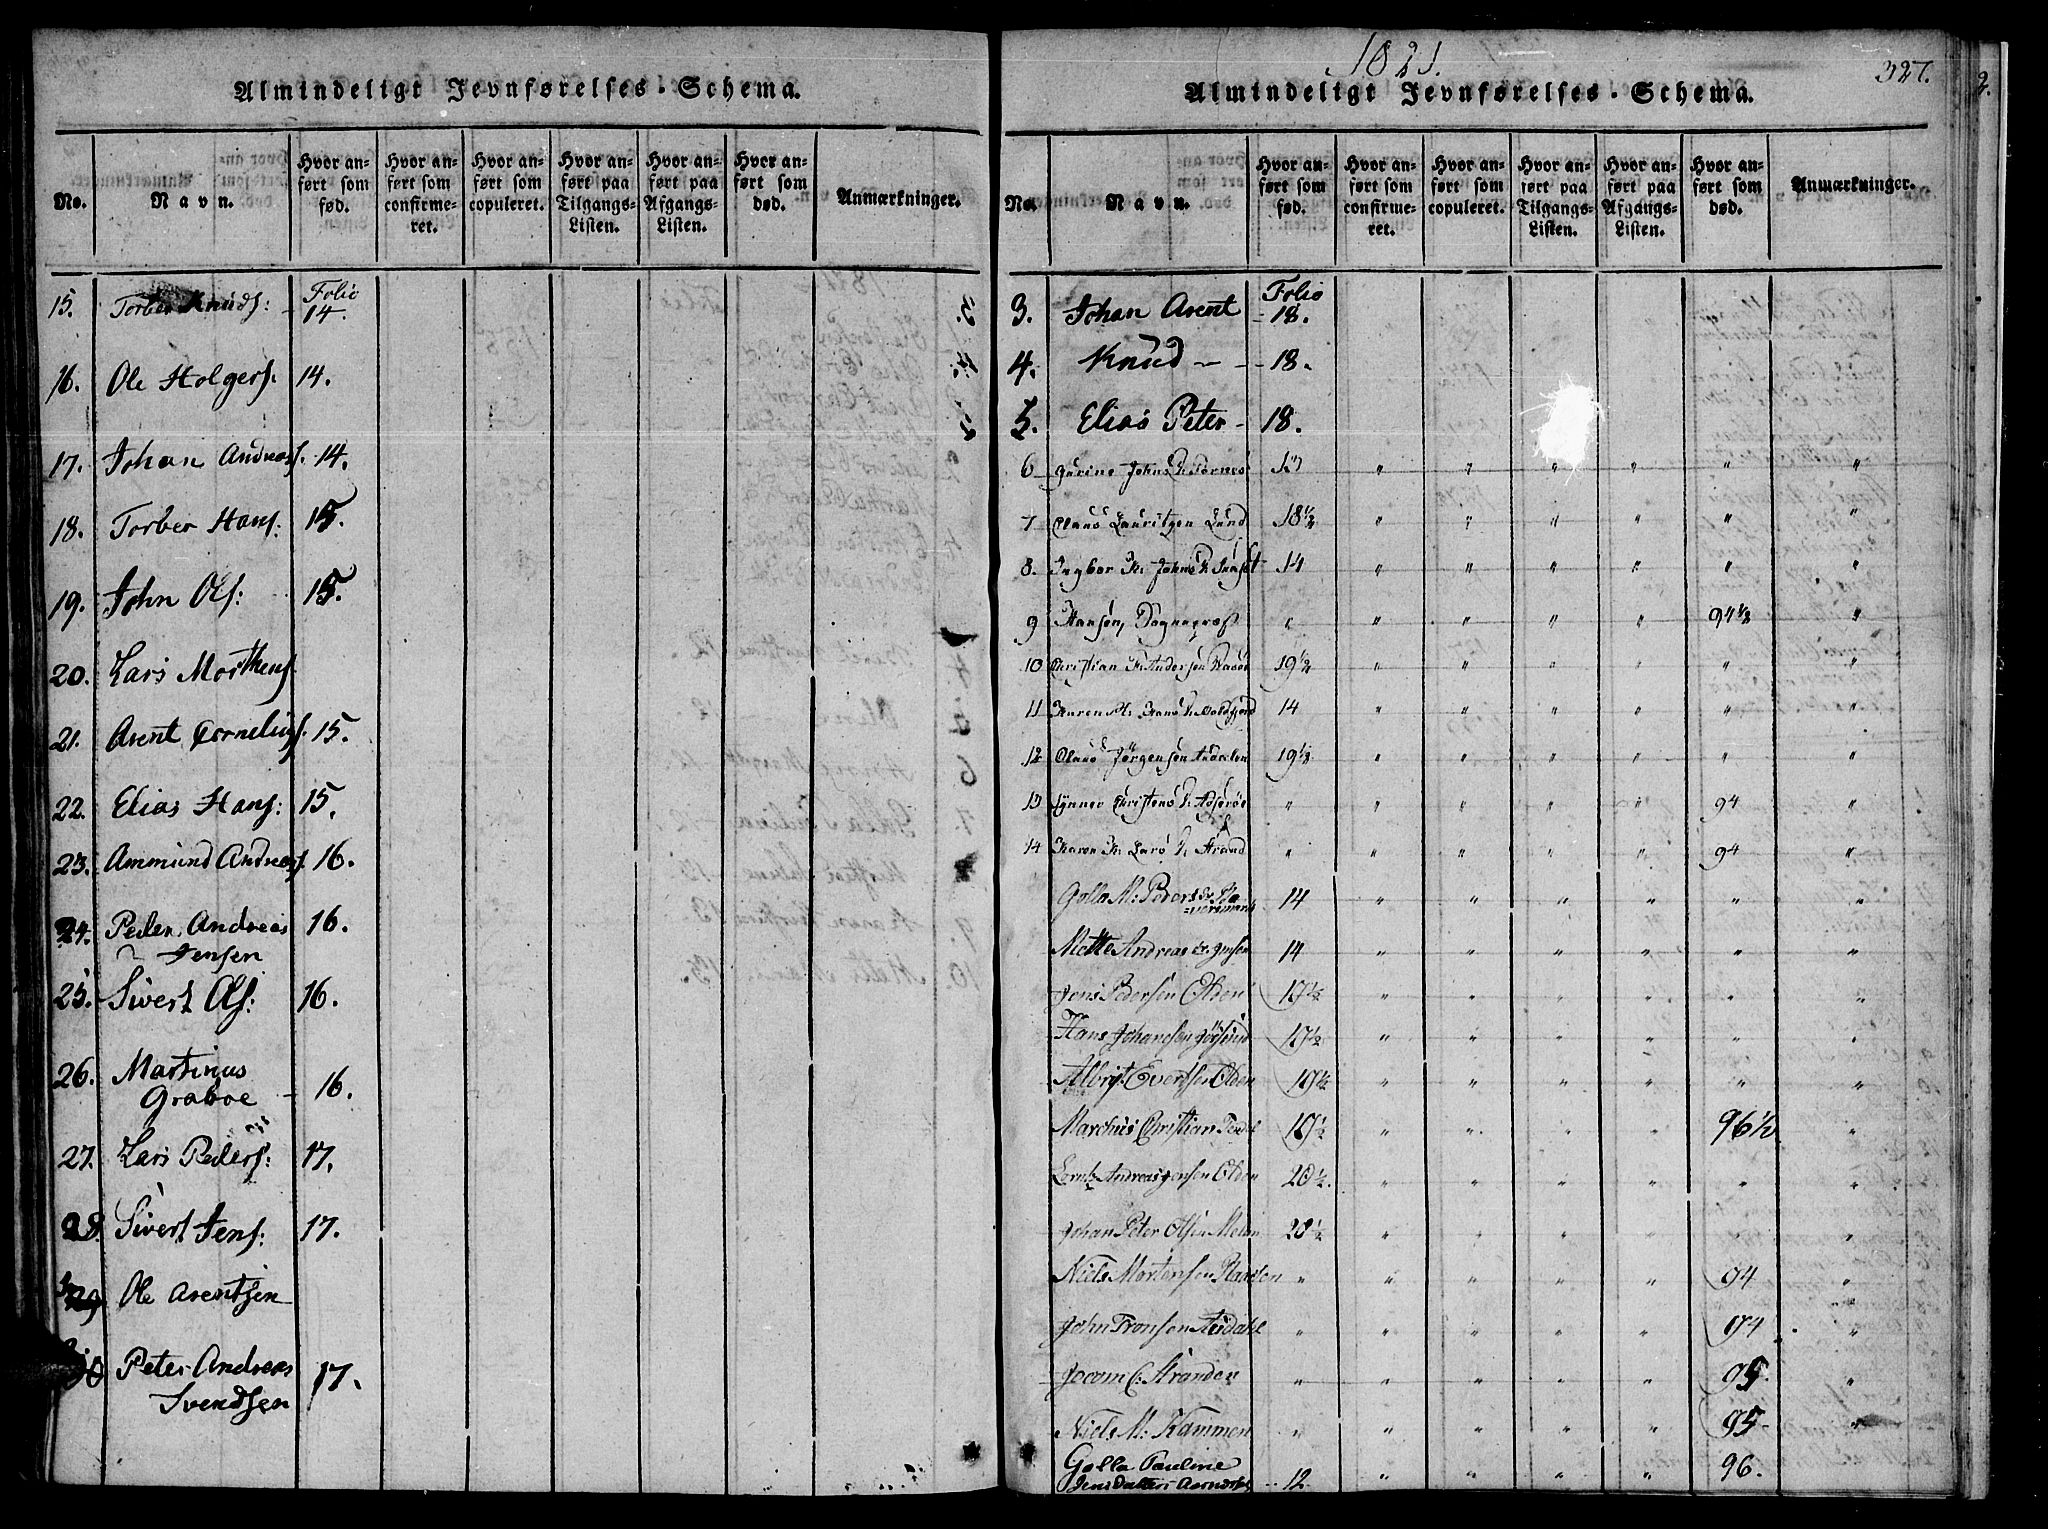 Almindeligt Jevnførelses-Schema.
No. Navn. Hvor anført som fød. Hvor anført som confirmeret. Hvor anført som copuleret. Hvor anført paa Tilgangs-Listen. Hvor anført paa Afgangs-Listen. Hvor anført som død. Anmærkninger.
Folio
15. Torber Knuds: 14.
16. Ole Holgers. 14.
17. Johan Andreas. 14.
18. Torber Hans: 15.
19. John Ols: 15.
20. Lars Morthens
21. Arent Cornelius. 15.
22. Elias Hans: 15.
23. Ammund Andreas. 16.
24. Peder Andreas 16.
Jensen
25. Sivert Ols: 16.
26. Martinus
Graboe - 16.
27. Lars Peders: 17.
28. Sivert Jens: 17.
29 Ole Arentsen
30 Peter Andreas 17.
Svendsen
1821.
327.
Almindeligt Jevnførelses-Schema.
No. Navn. Hvor anført som fød. Hvor anført som confirmeret. Hvor anført som copuleret. Hvor anført paa Tilgangs-Listen. Hvor anført paa Afgangs-Listen. Hvor anført som død. Anmærkninger.
Folio
3. Johan Arent - 18.
4. Knud - - 18.
5. Elias Peter - 18.
6 " " " " " "
7 Claus Lauritzen Lund 18½ " " " " " "
8. 14 " " " " " "
9 " " " " 94½ "
10 Christian 19½ " " " " " "
11 Karen 14 " " " " " "
12 Claus Jörgensön 19½ " " " " " "
13 Christens " " " " " 94 "
14 Karen Lars Strand " " " " " 94 "
Golla M: Peders 14 " " " " " "
Mette Andreas 14 " " " " " "
Jens Pedersen Olden 19½ " " " " " "
Hans Johansen 19½ " " " " " "
Evertsen Olden 19½ " " " " " "
Marchus Christian 19½ " " " " 96½ "
Andreas Jensen Olden 20½. " " " " " "
Johan Peter Olsen 20½ " " " " " "
Niels Mortensen " " " " " 94 "
John Tronsen " " " " " 94 "
Jocom C: Stranden " " " " " 95. "
Niels M: Hammen " " " " " 95 "
Golla Pauline
Jensdatter 12 " " " " 96. "